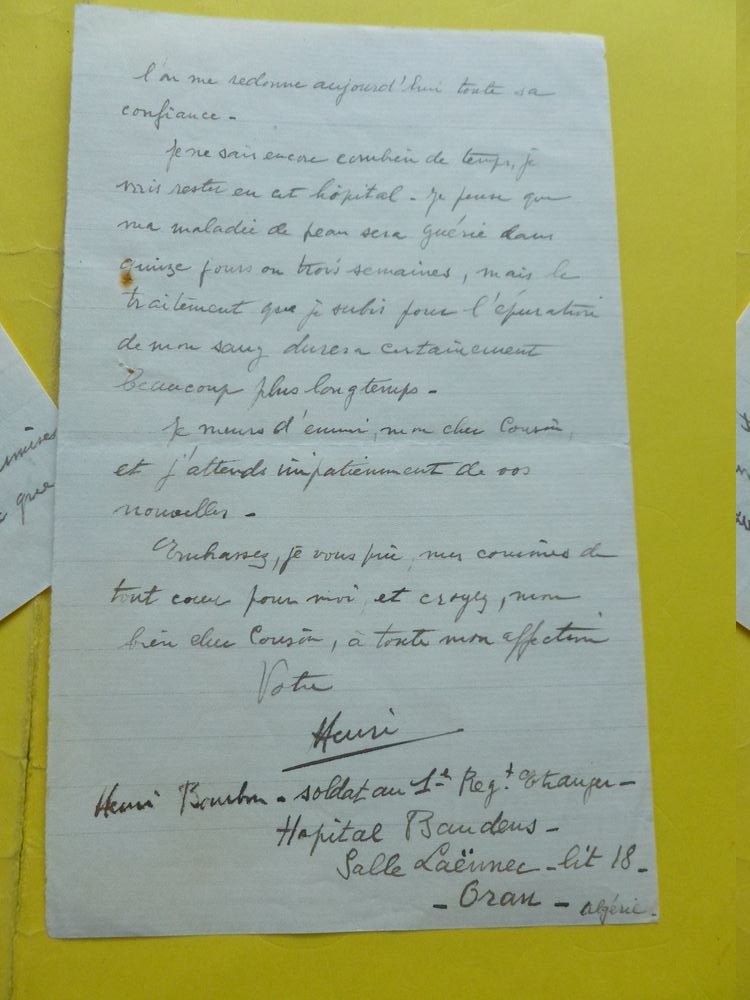 l'on me redonne aujourd'hui toute sa
confiance -
Je ne sais encore combien de temps, je
vais rester en cet hôpital - Je pense que
ma maladie de peau sera guérie dans
quinze jours ou trois semaines, mais le
traitement que je subis pour l'épuration
de mon sang durera certainement
beaucoup plus longtemps -
Je meurs d'ennui, mon cher Cousin,
et j'attends impatiemment de vos
nouvelles -
Embrassez, je vous prie, mes cousines de
tout coeur pour moi, et croyez, mon
bien cher Cousin, à toute mon affection
Votre
Henri
Henri Bourbon - soldat au 1er Regt Etranger -
Hopital Baudens -
Salle Laënnec - lit 18 -
- Oran - Algérie -
que